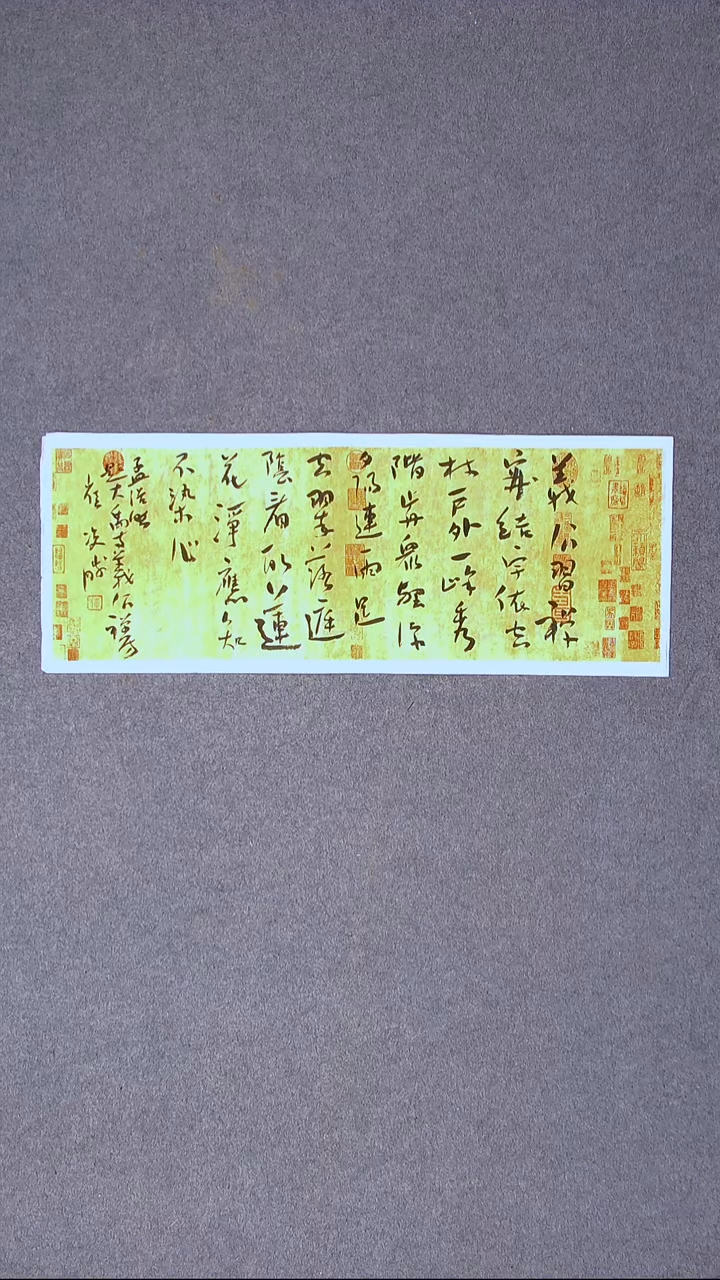 義公習禪
寂結宇依空
林戶外一峰秀
階前衆壑深
夕陽連雨足
空翠落庭
陰看取蓮
花淨應知
不染心
孟浩然
題大禹寺義公禪房